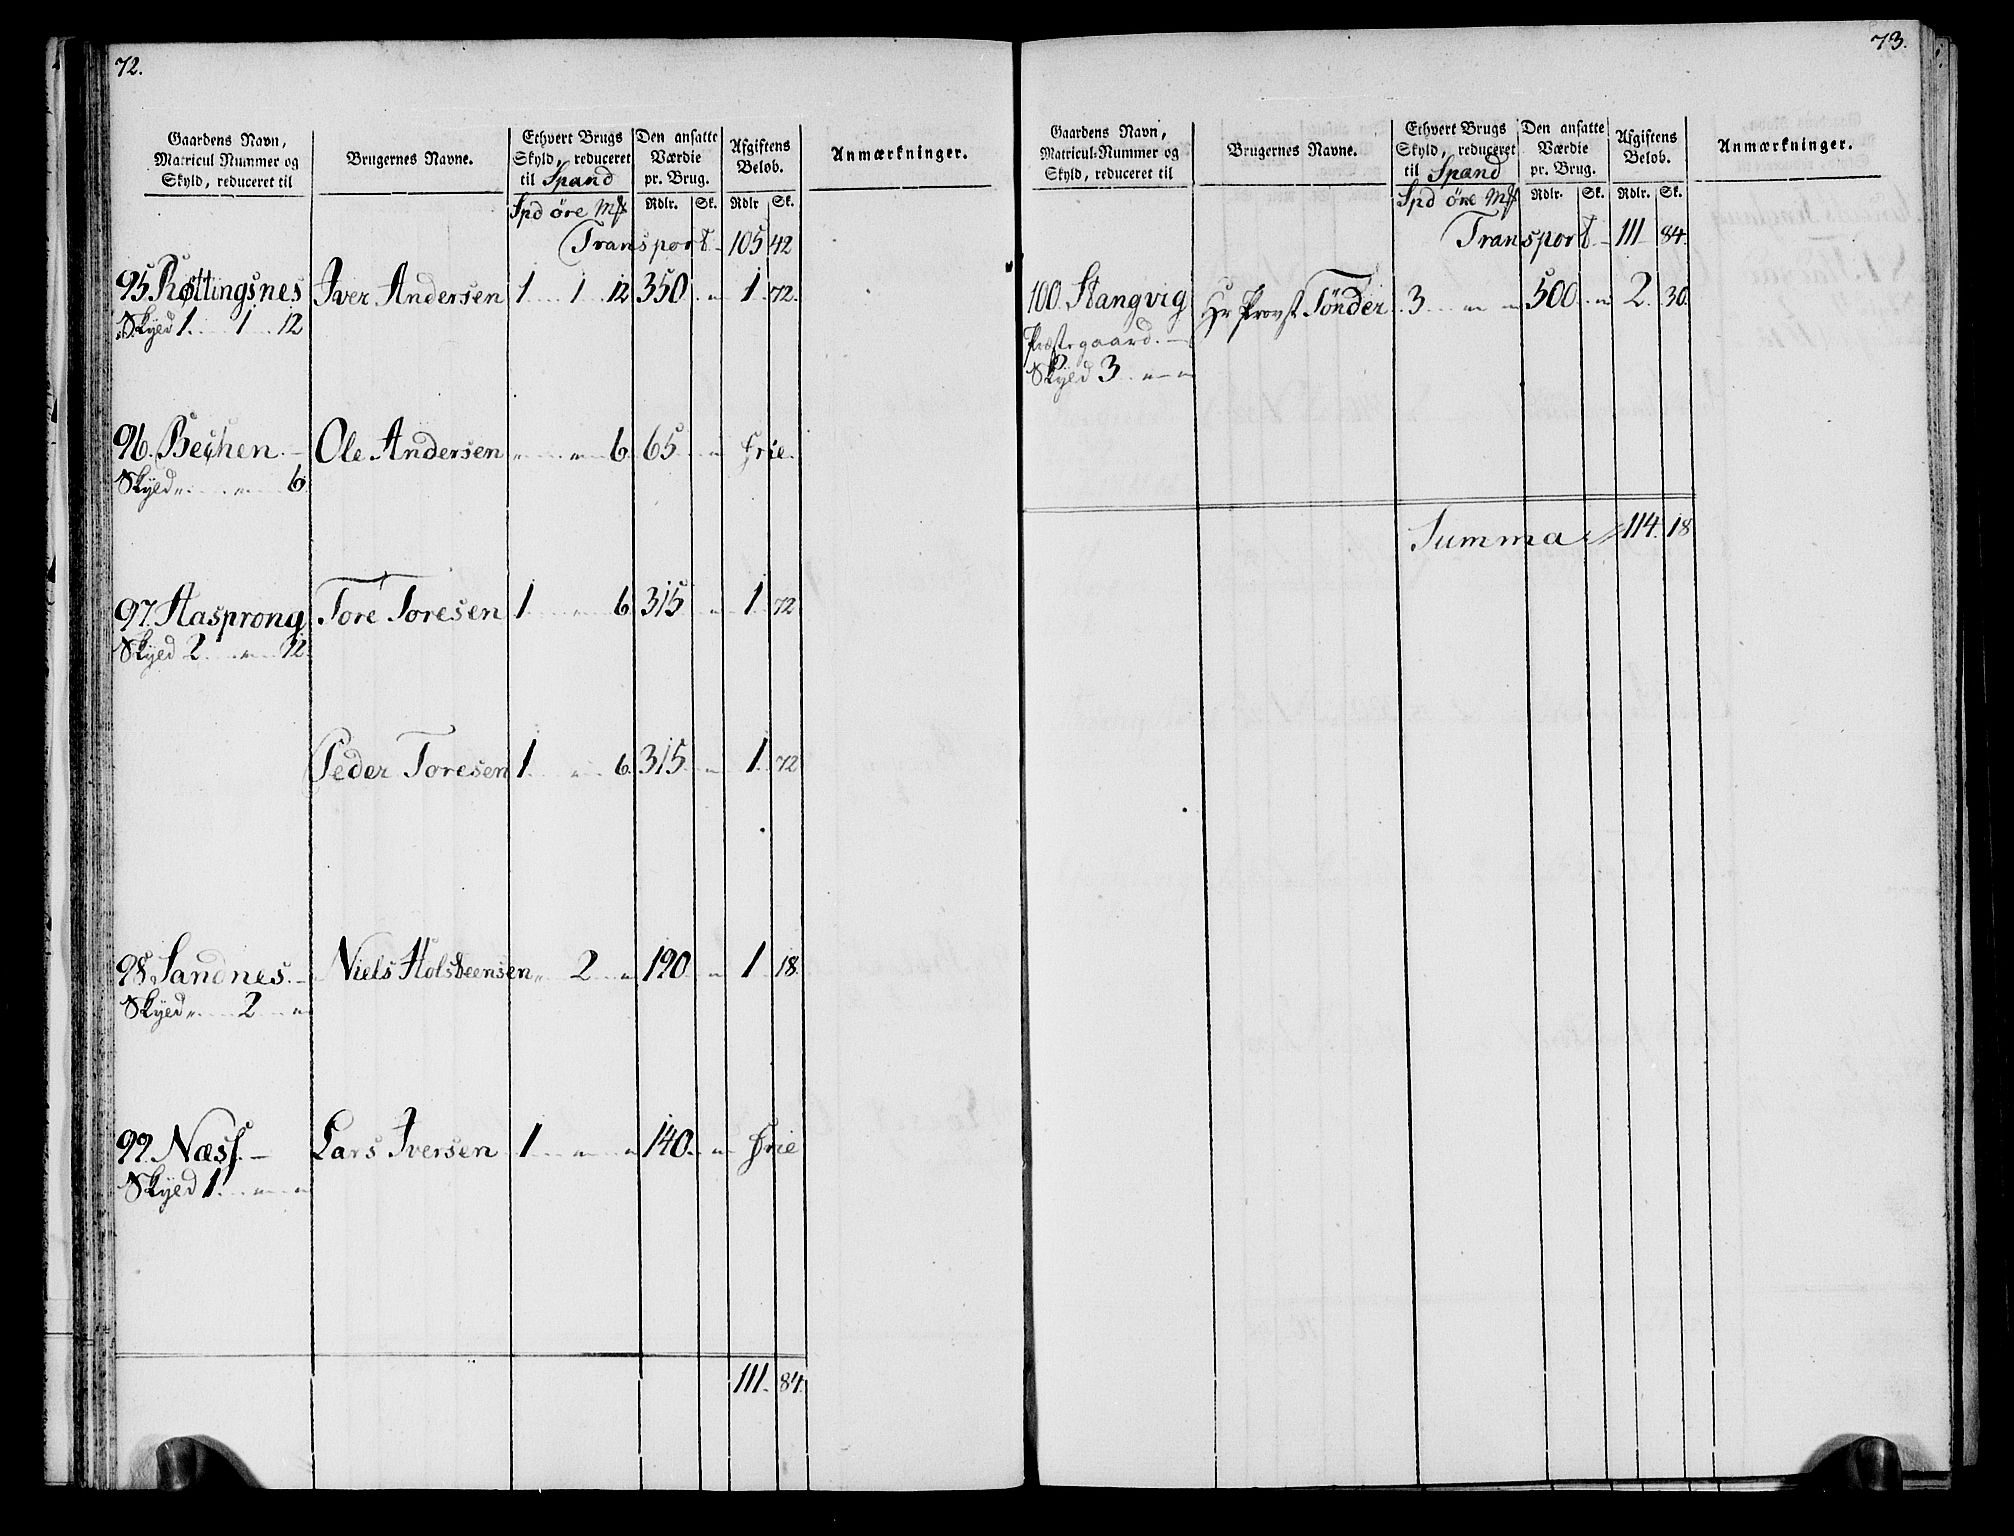 72.
Gaardens Navn, Matricul Nummer og Skyld, reduceret til
Brugernes Navne.
Ethvert Brugs Skyld, reduceret til Spand
Den ansatte Værdie pr. Brug.
Afgiftens Beløb.
Anmærkninger.
Spd öre M# Rdlr. Sk. Rdlr Sk.
Transport 105 42
95. Røttingsnes Iver Andersen 1 1 12 350 " 1 72.
Skyld 1 1 12
96. Bechen Ole Andersen " " 6 65 " frie.
Skyld " " 6
97. Hasprong Tore Toresen 1 " 6 315 " 1 72
Skyld 2 " 12
Peder Toresen 1 " 6 315 " 1 72
98. Sandnes Niels Holsteensen " 2 " 120 " 1 18
Skyld " 2 "
99. Næss Lars Iversen 1 " " 140 " frie
Skyld 1 " "
111. 84.
73.
Gaardens Navn, Matricul-Nummer og Skyld, reduceret til
Brugernes Navne.
Ethvert Brugs Skyld, reduceret til Spand
Den ansatte Værdie pr. Brug.
Afgiftens Beløb.
Anmærkninger.
Spd öre M# Rdlr. Sk. Rdlr. Sk.
Transport 111 84.
100. Stangvig Hr Provst Tönder 3 " " 500 " 2. 30.
Præstegaard.
Skyld 3 " "
Summa 114. 18